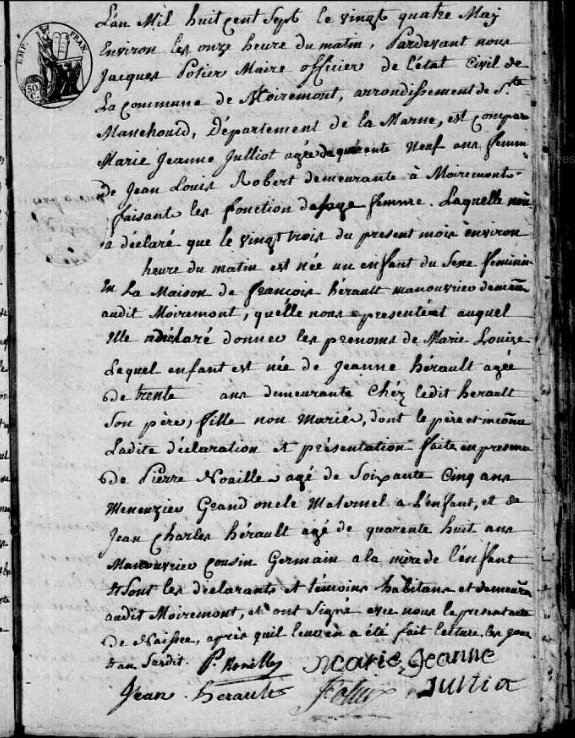 EMP. FRAN.
50 C.
L'an Mil huit cent Sept le vingt quatre Maj
Environ les onze heure du matin, Pardevant nous
Jacques Potier Maire officier de l'état Civil de
La Commune de Moiremont, arrondissement de Ste
Manehould, Département de la Marne, est compa
Marie Jeanne Julliot agée de quarente neuf ans femme
De Jean Louis Robert demeurante à Moiremont
faisant les fonction de sage femme. Laquelle nous
à déclaré que le vingt trois du present mois environ
heure du matin est née un enfant du Sexe feminin
En La Maison de françois hérault manouvrier demeura
audit Moiremont, qu'elle nous a presenté et auquel
Elle a déclaré donner les prenoms de Marie Louize
Lequel enfant est née de Jeanne hérault agée
de trente ans demeurante chéz ledit herault
Son père, fille non Mariée, dont le père est inconnu
Ladite déclaration et présentation faite en presence
de Pierre Noaille agé de Soixante Cinq ans
Menuzier Grand oncle Maternel a L'enfant, et de
Jean Charles hérault agé de quarente huit ans
Manouvrier Cousin Germain a la mère de l'enfant
Et Sont les déclarants et témoins habitans et demeura
audit Moiremont, et ont Signé avec nous le present acte
de Naissce, après qu'il leur en a été fait lecture les jour
et an Susdit. P. Noaille Marie Jeanne
Jean herault Potier Julliot